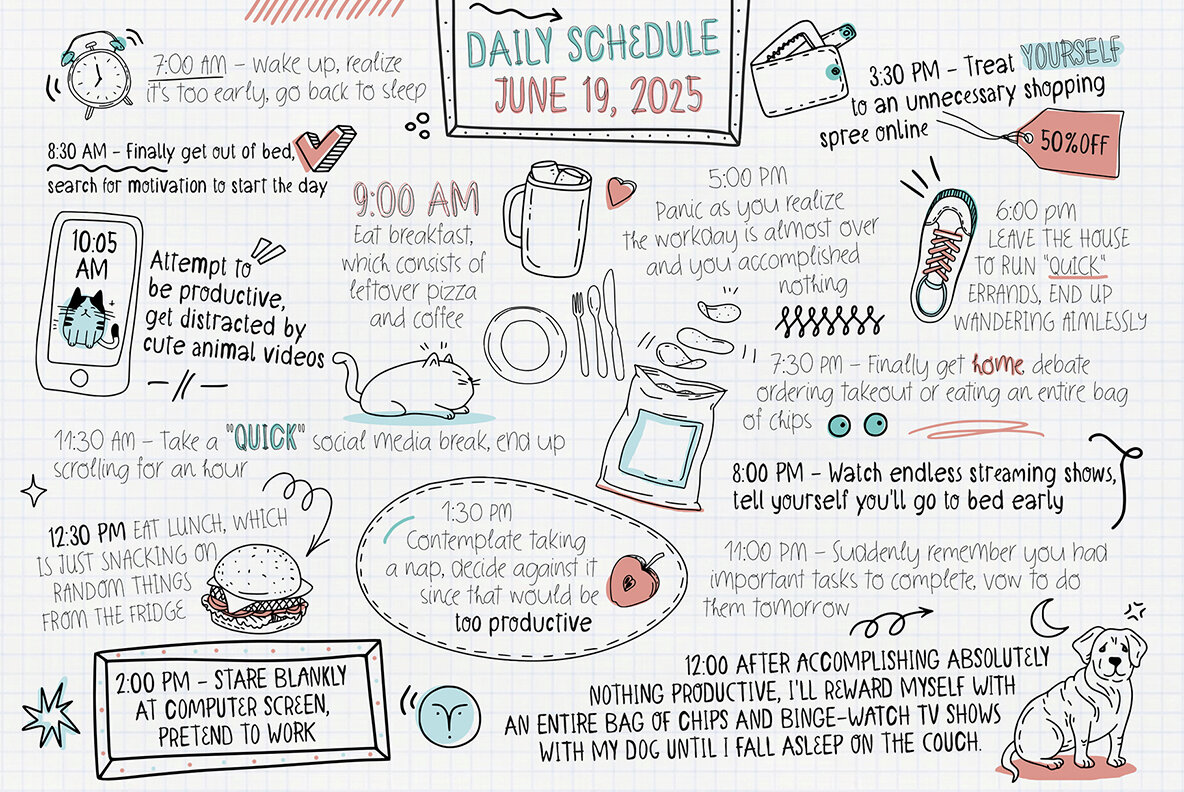 DAILY SCHEDULE
JUNE 19, 2025
7:00 AM – wake up, realize
it's too early, go back to sleep
8:30 AM – Finally get out of bed,
search for motivation to start the day
9:00 AM
Eat breakfast,
which consists of
leftover pizza
and coffee
10:05
AM
Attempt to
be productive,
get distracted by
cute animal videos
11:30 AM – Take a "QUICK" social media break, end up
scrolling for an hour
12:30 PM EAT LUNCH, WHICH
IS JUST SNACKING ON
RANDOM THINGS
FROM THE FRIDGE
1:30 PM
Contemplate taking
a nap, decide against it
since that would be
too productive
2:00 PM – STARE BLANKLY
AT COMPUTER SCREEN,
PRETEND TO WORK
3:30 PM – Treat YOURSELF
to an unnecessary shopping
spree online
50%OFF
5:00 PM
Panic as you realize
the workday is almost over
and you accomplished
nothing
6:00 pm
LEAVE THE HOUSE
TO RUN "QUICK"
ERRANDS, END UP
WANDERING AIMLESSLY
7:30 PM – Finally get home, debate
ordering takeout or eating an entire bag
of chips
8:00 PM – Watch endless streaming shows,
tell yourself you'll go to bed early
11:00 PM – Suddenly remember you had
important tasks to complete, vow to do
them tomorrow
12:00 AFTER ACCOMPLISHING ABSOLUTELY
NOTHING PRODUCTIVE, I'LL REWARD MYSELF WITH
AN ENTIRE BAG OF CHIPS AND BINGE-WATCH TV SHOWS
WITH MY DOG UNTIL I FALL ASLEEP ON THE COUCH.